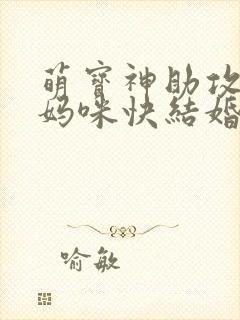 萌寶神助攻
媽咪快結婚
喻敏